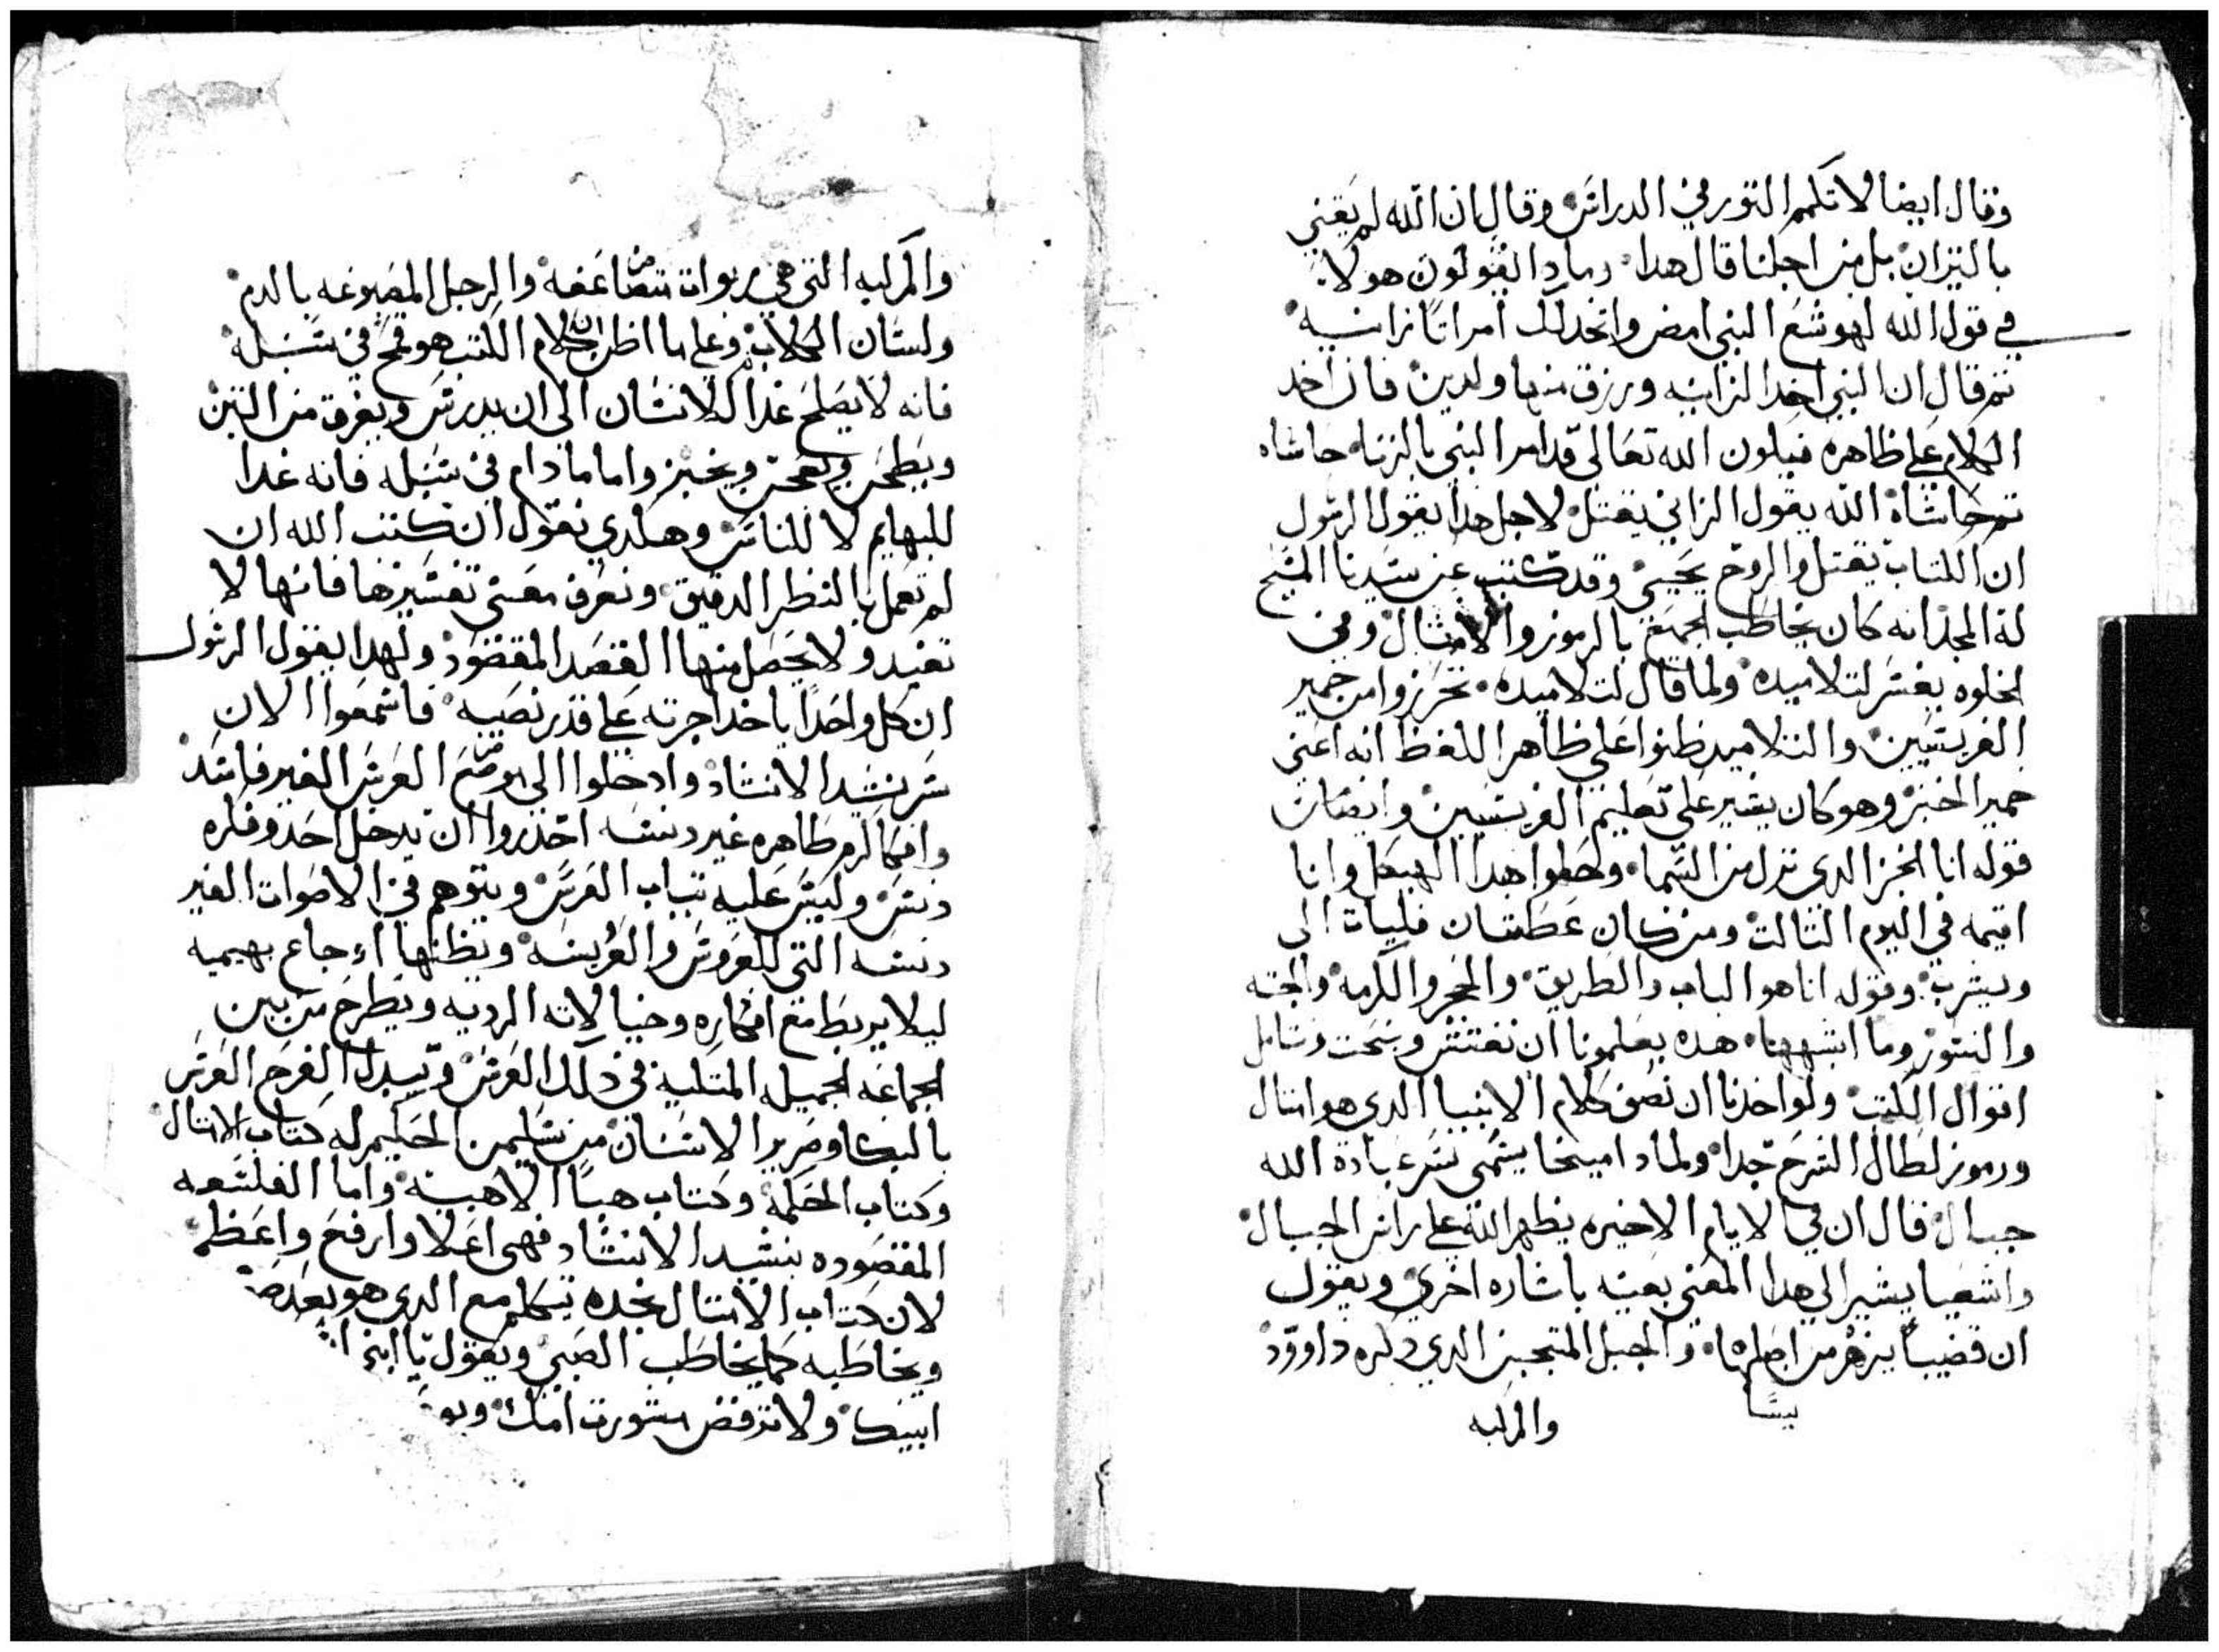 وقال ايضا لا تكمم التور في الدراس وقال ان الله لم يعني
بالتيران بل من اجلنا قال هدا وبمادا تقولون هولاء
في قول الله لهوشع النبي امض واتخد لك امراتا زانيه
تم قال ان النبي اخد الزانيه ورزق منها ولدين فان اخد
الكلام على ظاهره فيكون الله تعالى قد امر النبي بالزنا حاشاه
تم حاشاه الله يقول الزاني يقتل لاجل هدا يقول الرسول
ان الكتاب يقتل والروح يحيي وقد كتب عن سيدنا المسيح
له المجد انه كان يخاطب الجميع بالرموز والامثال وفي
الخلوه يفسر لتلاميده ولما قال لتلاميده تحرزوا من خمير
الفريسيين والتلاميد ظنوا على ظاهر اللفظ انه اعني
خمير الخبز وهو كان يشير على تعليم الفريسيين وايضا
قوله انا الخبز الدي نزل من السما وحلوا هدا الهيكل وانا
اقيمه في اليوم التالت ومن كان عطشان فليات الى
ويشرب وقوله انا هو الباب والطريق والحجر والكرمه والجنه
والنور وما اشبهها هده يعلمونا ان نفتش ونبحت ونتامل
اقوال الكتب ولو اخدنا ان نصف كلام الانبيا الدي هو امتال
ورموز لطال الشرح جدا ولمادا ميخا يسمي شرعبادة الله
جبال قال ان في الايام الاخيره يظهر الله على راس الجبال
واشعيا يشير الى هدا المعني بعينه باشاره اخري ويقول
ان قضيبا يزهر من اصلها والجبل المتجبن الدي دكره داوود
يسا
والمركبه
والمركبه التي هي ربوات متضاعفه والرجل المصبوغه بالدم
ولسان الكلاب وعلى ما اظن ان كلام الكتب هو قمح في سنبله
فانه لا يصلح غدا للانسان الى ان يدرس ويفرق من التبن
ويطحن ويعجن ويخبز واما مادام في سنبله فانه غدا
للبهايم لا للناس وهكدي نقول ان كتب الله ان
لم تعمل بالنظر الدقيق ونعرف معنى تفسيرها فانها لا
تفيد ولا يحصل منها القصد المقصود ولهدا يقول الرسول
ان كل واحدا ياخد اجرته على قدر نصبه فاسمعوا الان
سر نشيد الانشاد وادخلوا الى موضع العرس الغير فاسد
وافكاركم طاهره غير دنسه احدروا ان يدخل احد وفكره
دنس وليس عليه تياب العرس ويتوهم في الاصوات الغير
دنسه التي للعروس والعريسه ويظنها اوجاع بهيميه
ليلا يربط مع افكاره وخيالاته الرديه ويطرح من بين
الجماعه الجميله المتكيه في دلك العرس ويبدل الفرح العرس
بالبكا وصرير الاسنان من سليمن الحكيم له كتاب الامتال
وكتاب الحكمه وكتاب هبا الاهبيه واما الفلسفه
المقصوده بنشيد الانشاد فهي اعلا وارفع واعظم
لان كتاب الامتال نجده يتكلم مع الدي هو بعد
ويخاطبه كما يخاطب الصبي ويقول يا ابني
ابيك ولا ترفض مشورت امك